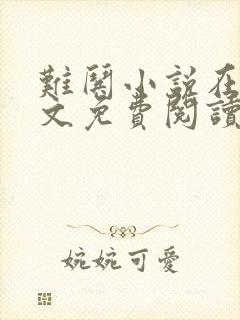 難鬨小說在
文免費閱讀
婉婉可愛